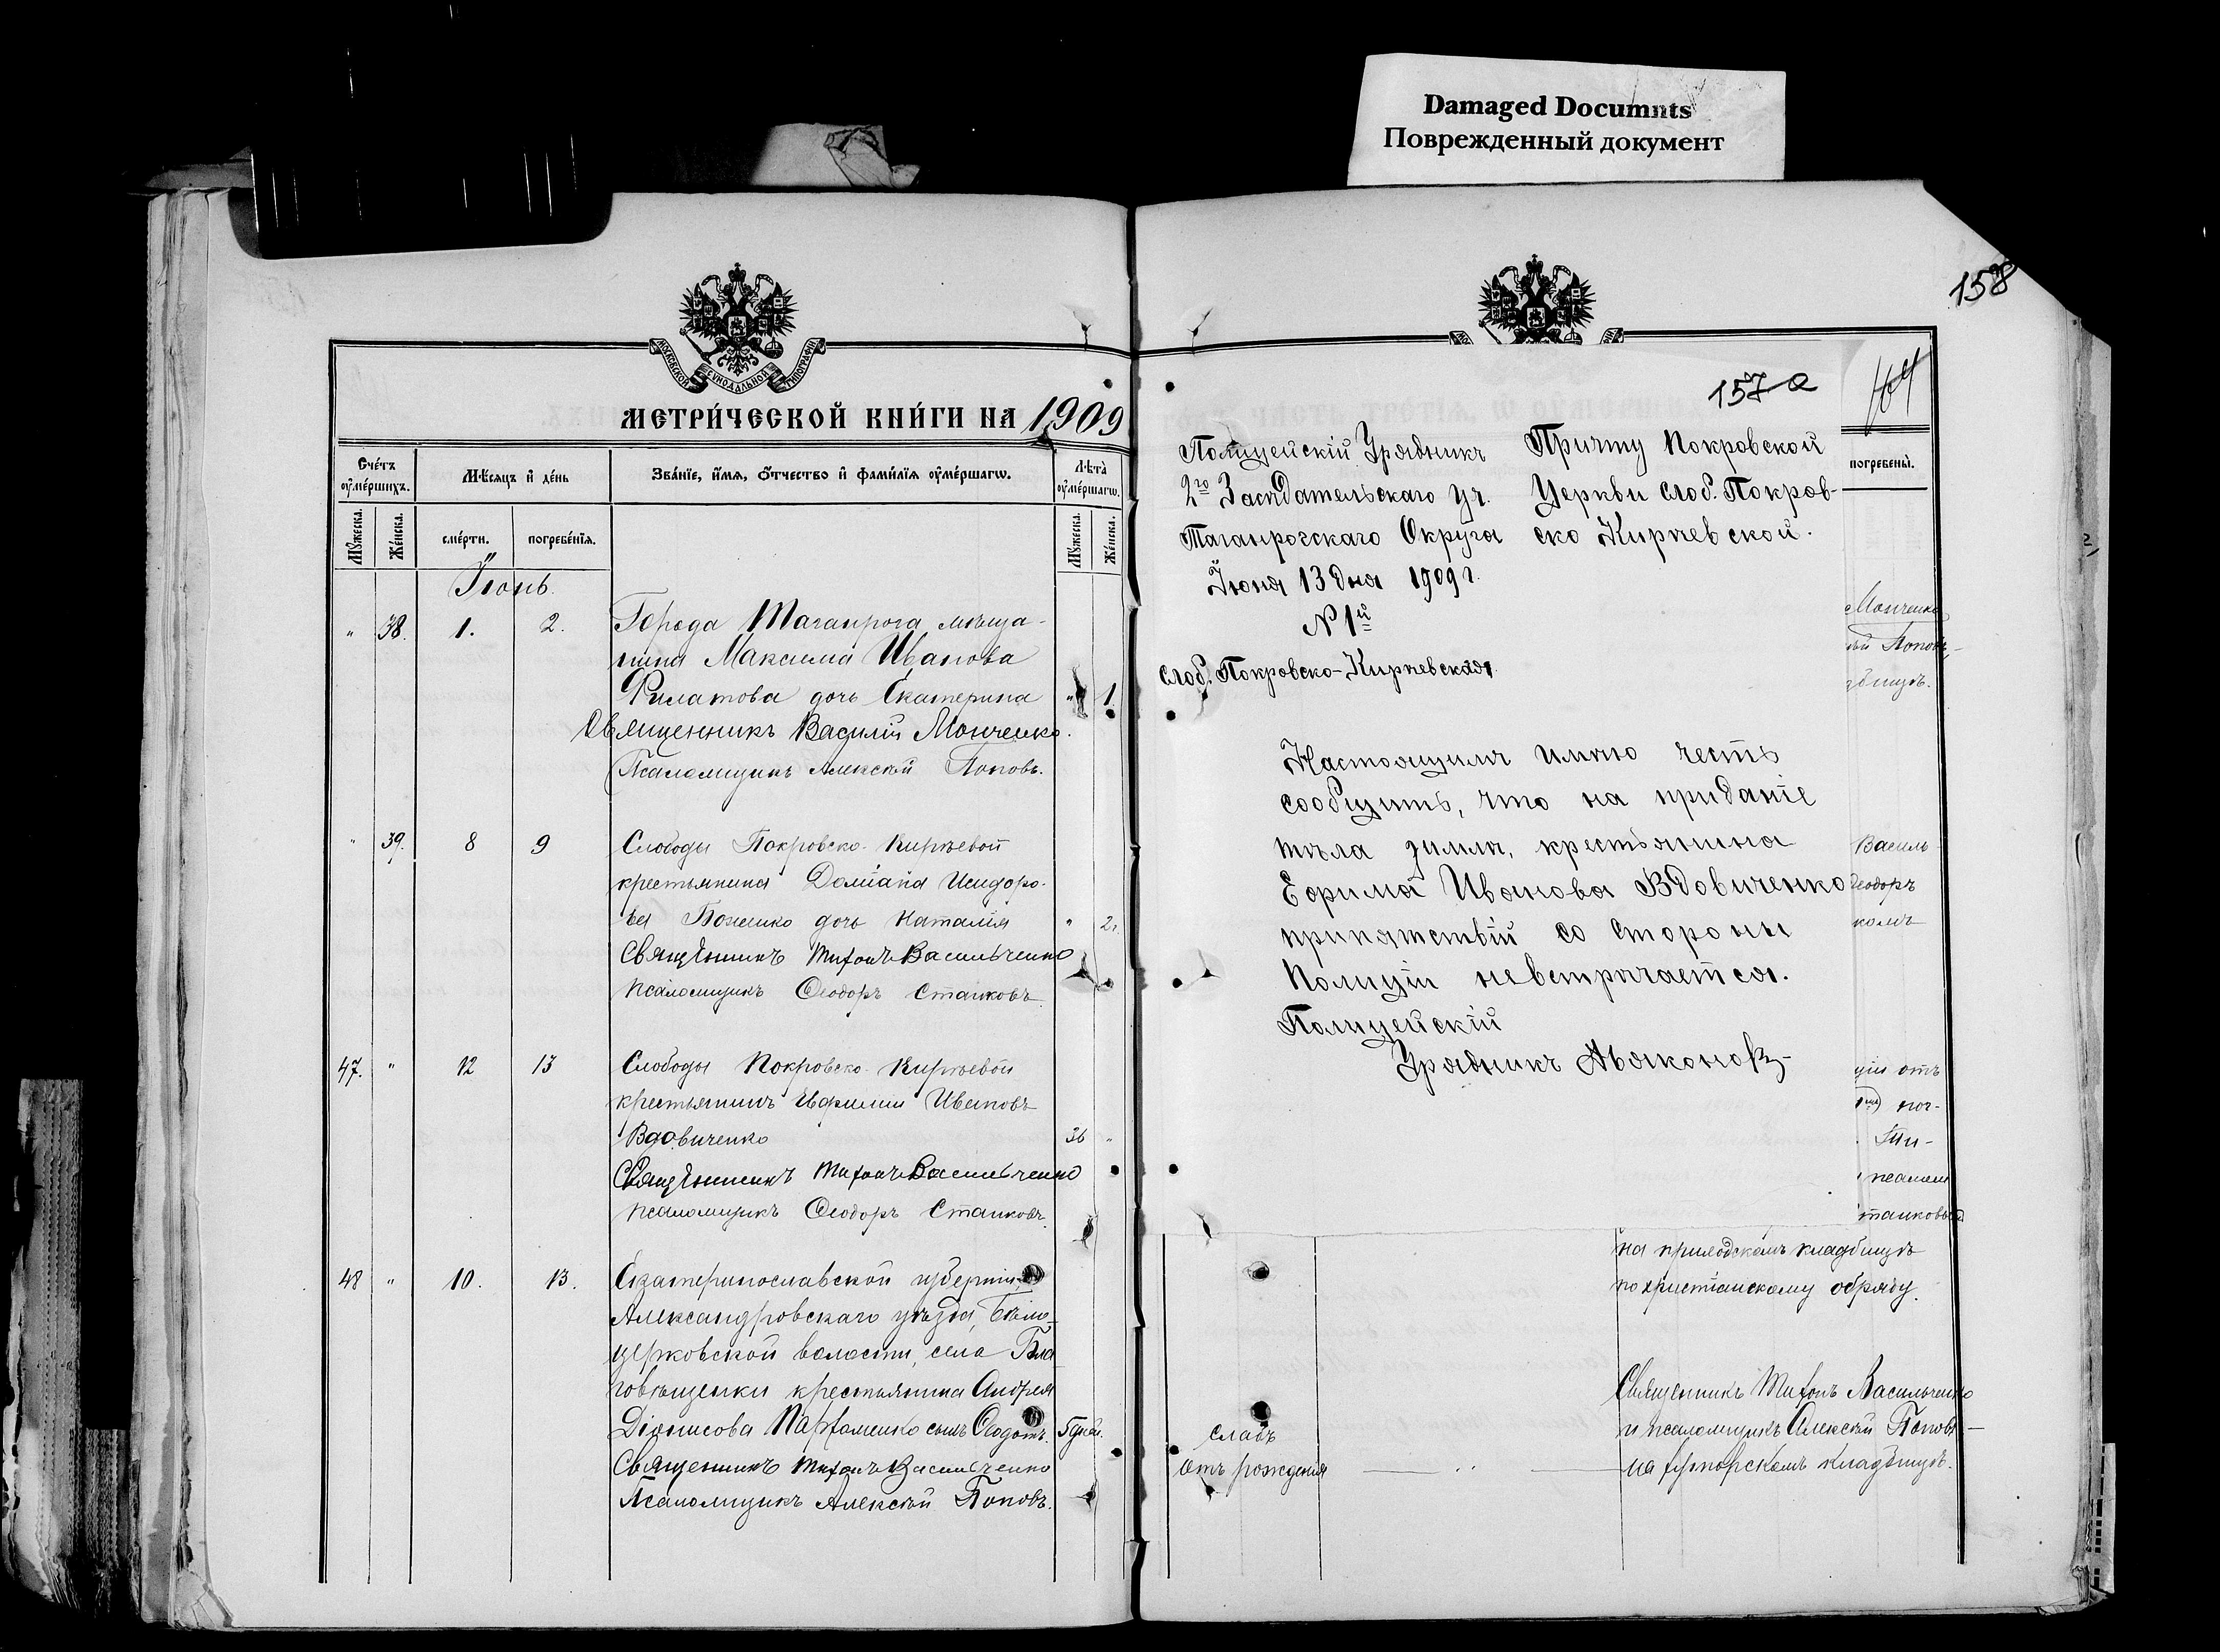 Damaged Documnts
Поврежденный документ
158
МОСКОВСКОЙ СѴНОДАЛЬНОЙ ТИПОГРАФІИ
МЕТРИ́ЧЕСКОЙ КНИ́ГИ НА 1909
Сче́тъ оуме́ршихъ.
Мѣ́сяцъ и де́нь
Зва́нїе, и́мя, ѻ́тчество и фами́лїя оуме́ршагѡ.
Лѣта̀ оуме́ршагѡ.
Му́жеска.
Же́нска.
сме́рти.
погребе́нїя.
Му́жеска.
Же́нска.
Іюнь.
" 38. 1. 2. Города Таганрога мѣща-
нина Максима Иванова
Филатова дочь Екатерина " 1.
Священникъ Василій Монченко.
Псаломщикъ Алексѣй Поповъ.
" 39. 8 9 Слободы Покровско-Кирѣевой
крестьянина Даміана Исидоро-
ва Боженко дочь Наталія " 2г.
Священникъ Тихонъ Васильченко
псаломщикъ Ѳеодоръ Станковъ.
47. " 12 13 Слободы Покровско-Кирѣевой
крестьянинъ Евфимій Ивановъ
Вдовиченко 36 "
Священникъ Тихонъ Васильченко
псаломщикъ Ѳеодоръ Станковъ.
48 " 10. 13. Екатеринославской губерніи,
Александровскаго уѣзда, Бѣло-
церковской волости, села Бла
говѣщенки крестьянина Андрея
Діонисова Парfоменко сынъ Ѳеодотъ. 5 дней.
Священникъ Тихонъ Васильченко
Псаломщикъ Алексѣй Поповъ.
157а
164
погребены̀.
Полицейскій Урядникъ
2го Засѣдательскаго уч.
Таганрогскаго Округа
Іюня 13 дня 1909 г.
№ 1й
слоб. Покровско-Кирѣевская
Причту Покровской
Церкви слоб. Покров-
ско Кирѣевской.
Настоящимъ имѣю честь
сообщить, что на приданіе
тѣла землѣ, крестьянина
Ефима Иванова Вдовиченко
припятствій со стороны
Полиціи невстрѣчается.
Полицейскій
Урядникъ Дьяконовъ
Мончен­ко
Поповъ
Василь
Ѳеодоръ
комъ
ціи отъ
поч-
Ти-
псалом
танковы
на приходскомъ кладбищѣ
по христіанскому обряду.
Священникъ Тихонъ Васильченко
и псаломщикъ Алексѣй Поповъ
слабъ
отъ рожденія
на хуторскомъ кладбищѣ.